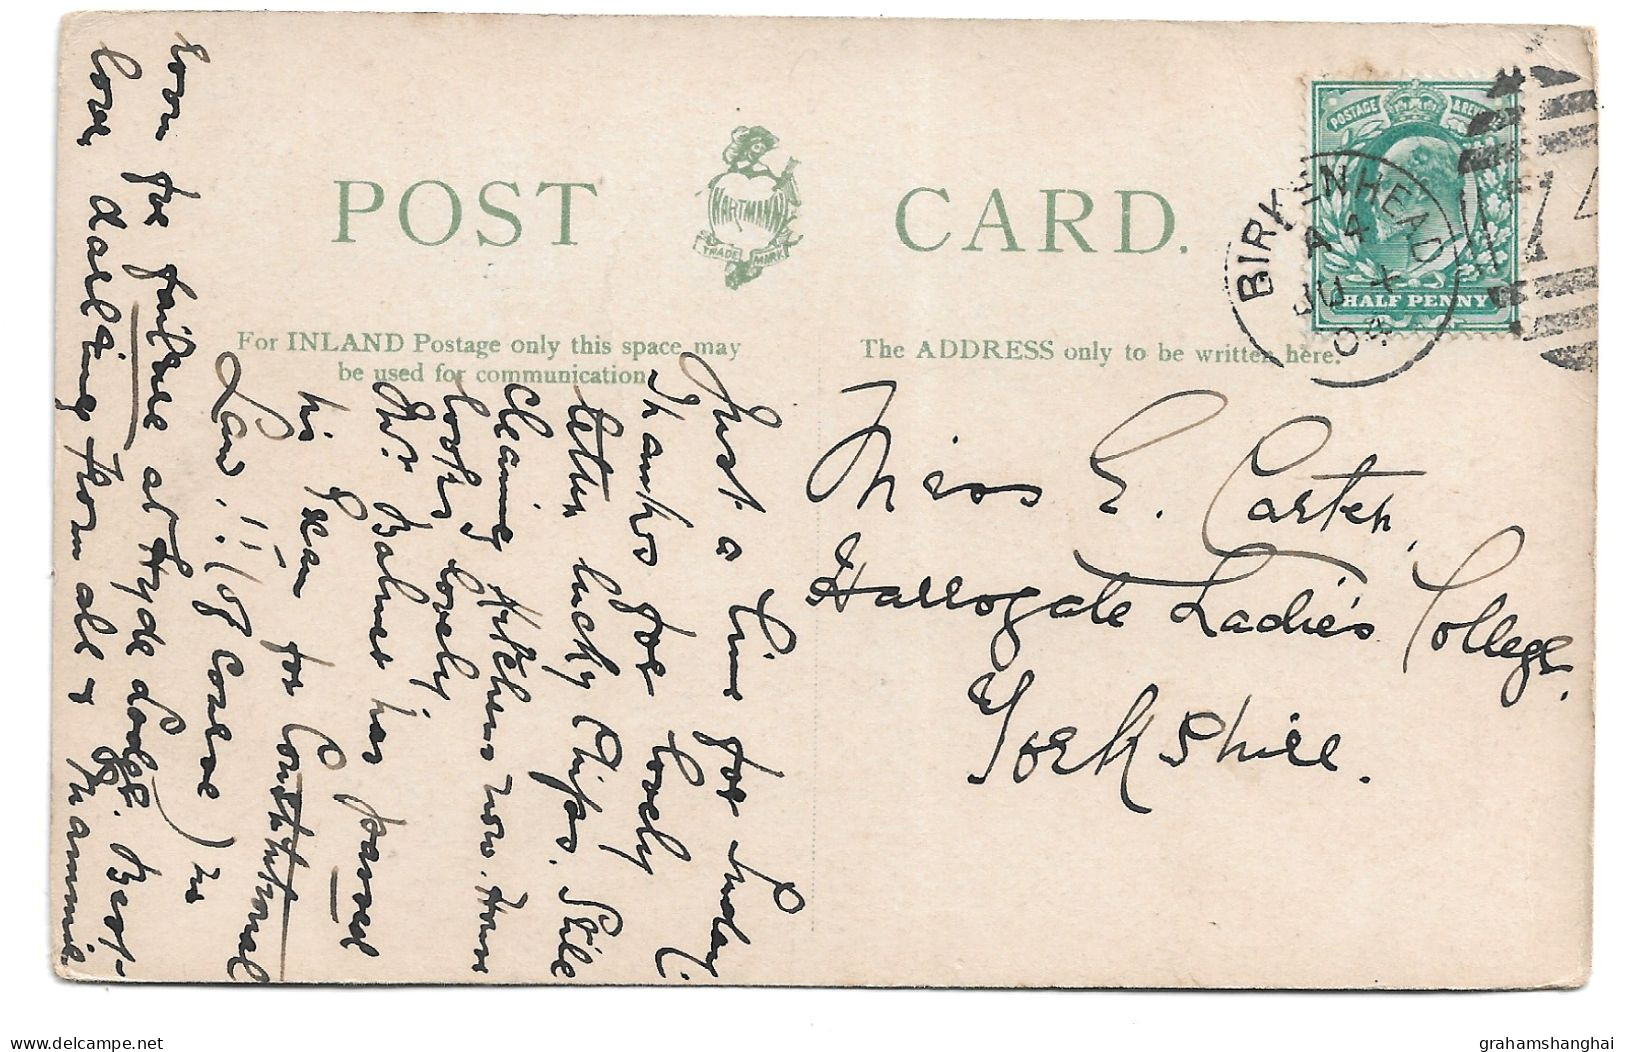 POST CARD.
HARTMANN
TRADE MARK
For INLAND Postage only this space may
be used for communication.
The ADDRESS only to be written here.
POSTAGE & REVENUE
HALF PENNY
BIRKENHEAD
A 4
JU
Miss E. Carter,
Harrogate Ladie's College,
Yorkshire.
Just a line for Sunday.
Thanks for lovely
letter lucky Chips. Still
Cleaning Kitchens now. House
looks lovely
Mr. Balmer has passed
his Exam for Constitutional
Law!!! (of course) no
room for failure at Hyde Lodge). Best
love darling from all & Mammie.
delcampe.net
grahamshanghai